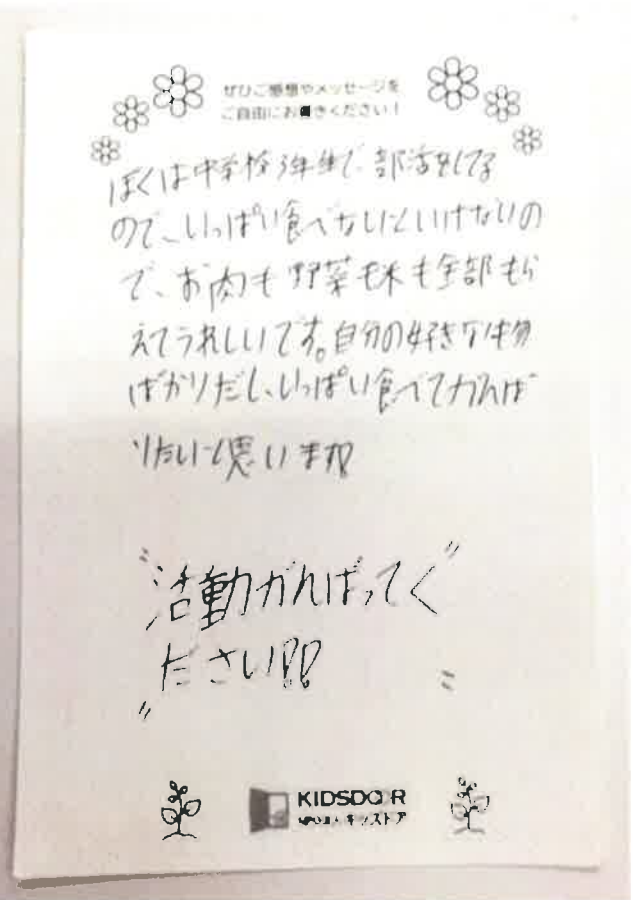 ぜひご感想やメッセージを
ご自由にお書きください！
ぼくは中学校3年生で、部活をしてる
ので、いっぱい食べないといけないの
で、お肉も野菜も米も全部もら
えてうれしいです。自分の好きな物
ばかりだし、いっぱい食べてがんば
りたいと思います!!
活動がんばってく
ださい!!
KIDSDOOR
NPO法人キッズドア